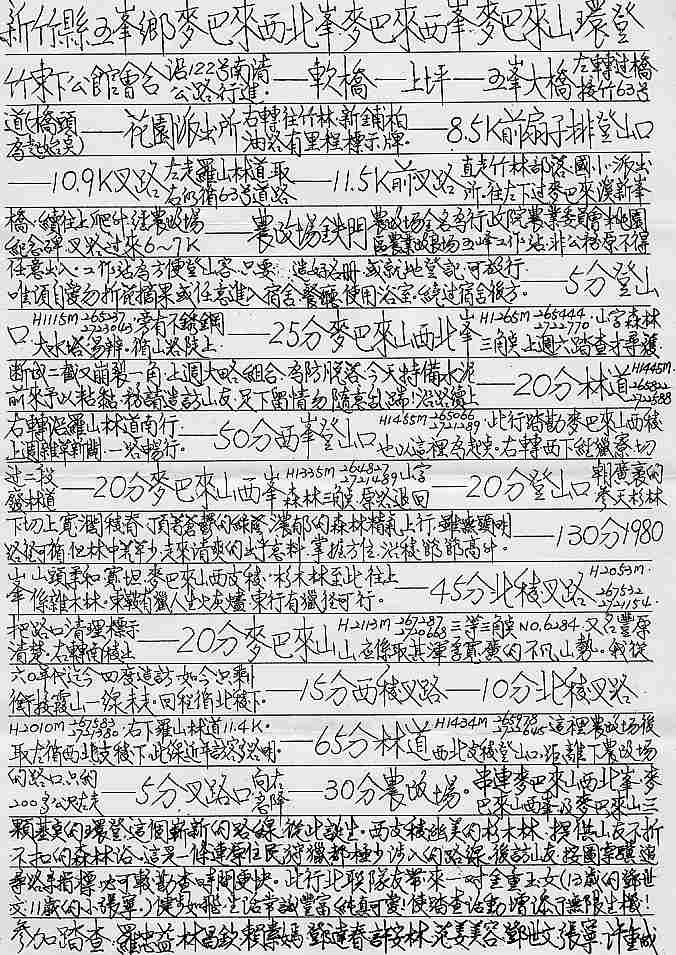 新竹縣五峯鄉麥巴來西北峯麥巴來西峯麥巴來山環登
竹東下公館會合 沿122号南清公路行進 —— 軟橋 —— 上坪 —— 五峯大橋 左轉過橋接竹63号
道(橋頭為起始点) —— 花園派出所 右轉往竹林新鋪柏油路有里程標示牌 —— 8.5K前扇子排登山口
—— 10.9K叉路 左走羅山林道取右仍循63号道路 —— 11.5K前叉路 直走竹林部落國小派出所往左下過麥巴來溪新峯
橋續往上爬升 農改場紀念碑叉路过來6~7K —— 農改場鉄門 農改場全名為行政院農業委員會桃園區農業改良場五峰工作站非公務原不得
任意出入.工作站為方便登山客只要 造好名冊 或就地登記可放行.唯須自愛勿折花摘果或任意進入宿舍餐廳使用浴室.繞过宿舍後方 —— 5分登山
口 H1115M 265237 2723043 旁有不銹鋼大水塔易辨.循山路陡上 —— 25分麥巴來山西北峯 H1265M 265444 2722770 山字森林三角点上週六踏查才尋獲
断成二截又崩裂一角.上週大略組合.為防脫落今天特備水泥前來予以粘黏.務請造訪山友足下留情勿隨意亂踢!沿路續上 —— 20分林道 H1445M 265822 2722588
右轉沿羅山林道南行.上週雜草新開.一路暢行. —— 50分西峯登山口 H1465M 265066 2721289 此行踏勘麥巴來山西稜也以這裡為起点.右轉西下經獵寮切
过二段廢林道 —— 20分麥巴來山西峯 H1335M 264827 2721489 山字森林三角点.原路退回 —— 20分登山口 朝廣袤的參天杉林
下切上寬濶稜脊.頂著蒼鬱的綠蔭.濃郁的森林精氣上行.雖無頭明路徑可循但林中草少走來清爽的出乎意料.掌握方位.沿稜節節高升. —— 130分1980
峯 山頭柔和寬坦.麥巴來山西支稜.杉木林至此.往上係雜木林.東鞍有獵人生火灰燼.東行有獵徑可行. —— 45分北稜叉路 H2053M 267532 2721154
把路口清理標示清楚.右轉南稜上 —— 20分麥巴來山 H2113M 267287 2720663 三等三角点NO.6284.又名豐原山.應係取其渾厚寬廣的不凡山勢.我從
六0年代迄今四度造訪.如今只剩銜接霞山一線未走.回程循北稜下. —— 15分西稜叉路 —— 10分北稜叉路
H2010M 267583 2721380 右下羅山林道11.4K.取左循西北支稜下.此線近年訪客路明. —— 65分林道 H1434M 265978 2722645 這裡農改場後西北支稜登山口.距離下農改場
的路口只約200多公尺左走 —— 5分叉路口 向右急降 —— 30分農改場. 串連麥巴來山西北峯.麥巴來山西峯及麥巴來山三
顆基点的環登這個嶄新的路線從此誕生.西支稜幽美的杉木林.提供山友不折
不扣的森林浴.這是一條連原住民狩獵都極少涉入的路線.後訪山友按圖索驥追
尋路条指標必可較勘查時間更快.此行北聯隊友帶來一對金童玉女(13歲的鄧世
文11歲的小張寧.)
參加踏查.羅忠益 林昌欽 賴素嫣 鄧達春 許安林 范姜美容 鄧世文 張寧